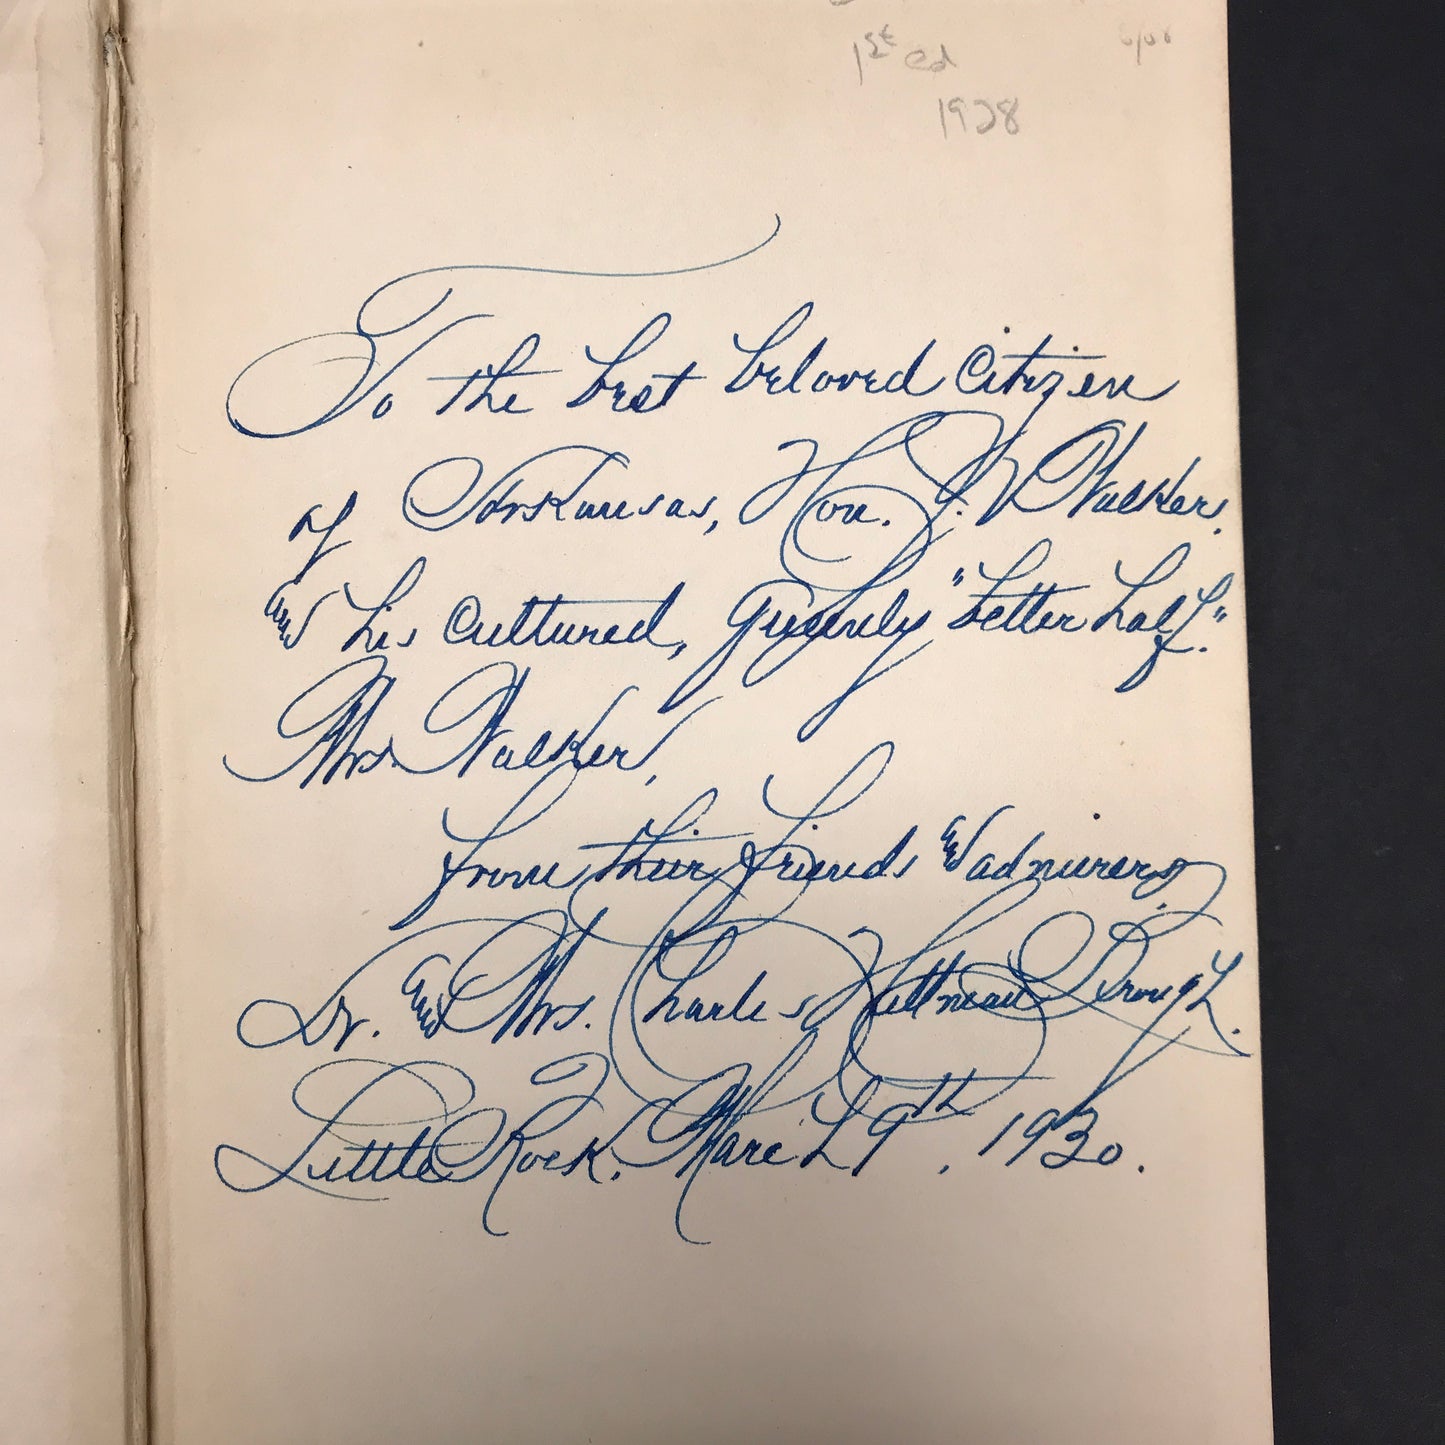 1st ed
1928
To the best beloved Citizen
of Arkansas, Hon. J. V Walker,
and his cultured, queenly "better half."
Mrs. Walker,
from their friends and admirers,
Dr. and Mrs. Charles Hillman Brough.
Little Rock, March 9th, 1930.